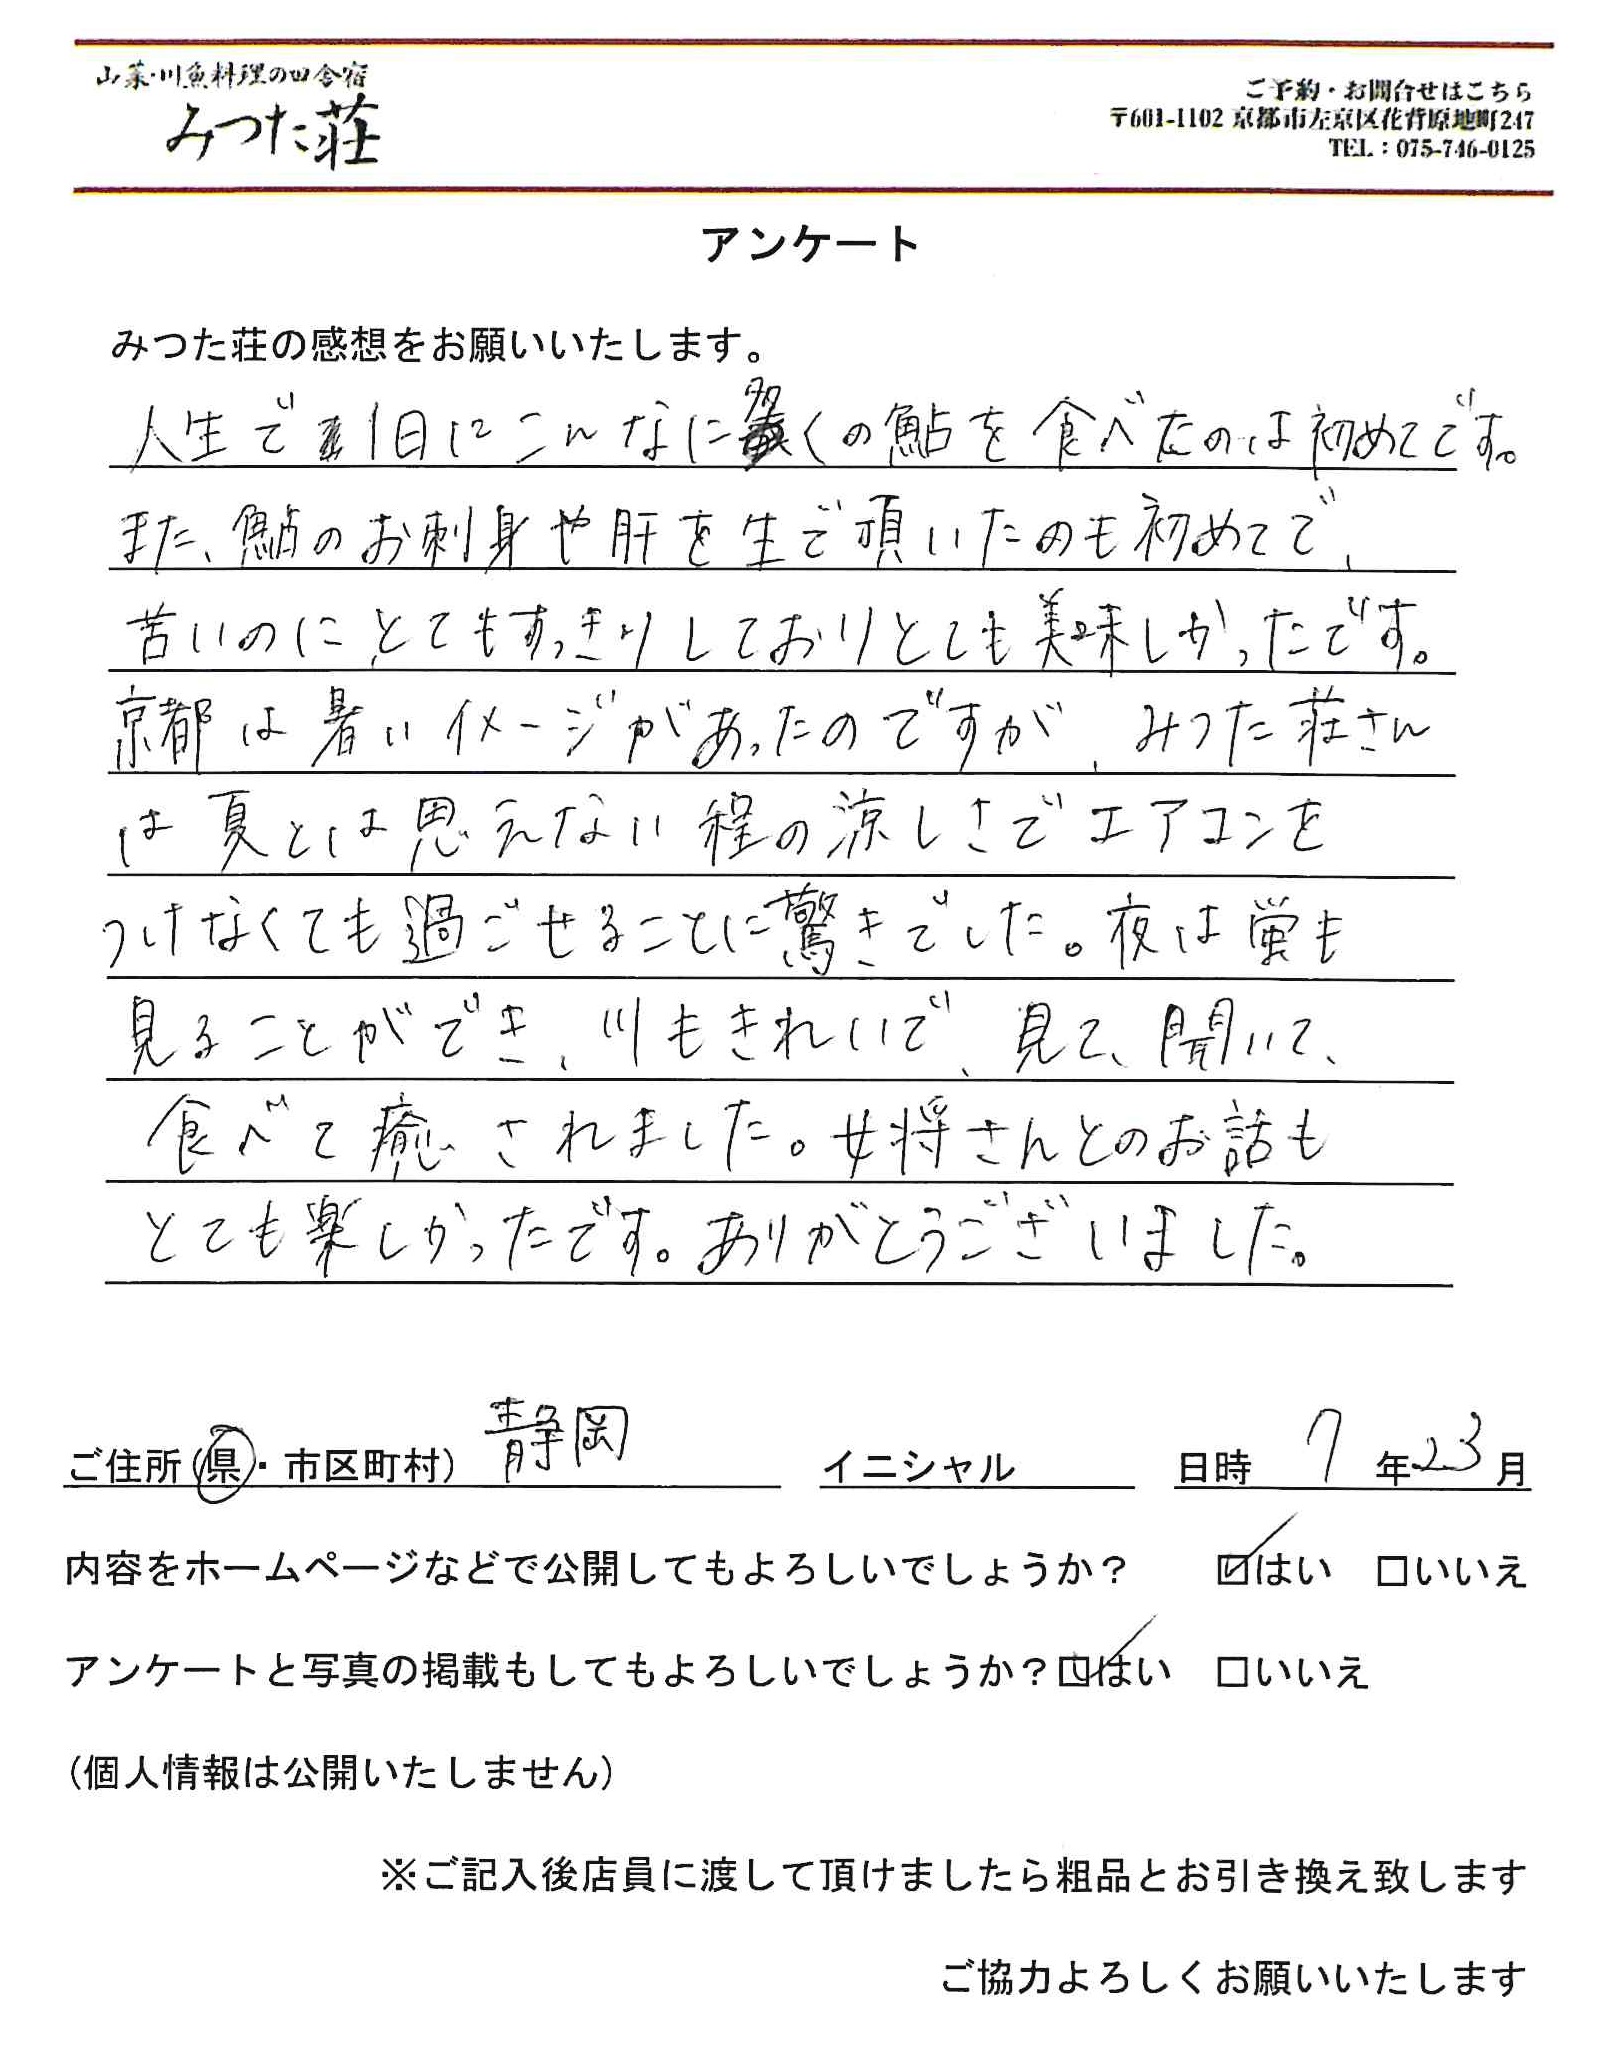 山菜・川魚料理の田舎宿
みつた荘
ご予約・お問合せはこちら
〒601-1102 京都市左京区花背原地町247
TEL：075-746-0125
アンケート
みつた荘の感想をお願いいたします。
人生で1日にこんなに多くの鮎を食べたのは初めてです。
また、鮎のお刺身や肝を生で頂いたのも初めてで、
苦いのに、とてもすっきりしておりとても美味しかったです。
京都は暑いイメージがあったのですが、みつた荘さん
は夏とは思えない程の涼しさでエアコンを
つけなくても過ごせることに驚きでした。夜は蛍も
見ることができ、川もきれいで、見て、聞いて、
食べて癒されました。女将さんとのお話も
とても楽しかったです。ありがとうございました。
ご住所(県・市区町村) 静岡 イニシャル 日時 7年23月
内容をホームページなどで公開してもよろしいでしょうか？ ☑はい □いいえ
アンケートと写真の掲載もしてもよろしいでしょうか？☑はい □いいえ
(個人情報は公開いたしません)
※ご記入後店員に渡して頂けましたら粗品とお引き換え致します
ご協力よろしくお願いいたします